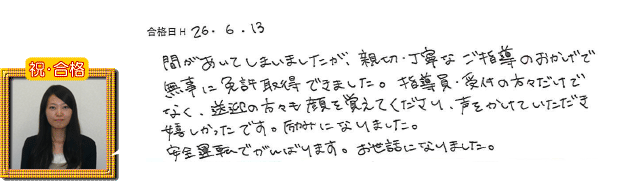 合格日 H 26.6.13
祝・合格
間があいてしまいましたが、親切・丁寧なご指導のおかげで
無事に免許取得できました。指導員・受付の方々だけで
なく、送迎の方々も顔を覚えてくださり、声をかけていただき
嬉しかったです。励みになりました。
安全運転でがんばります。お世話になりました。